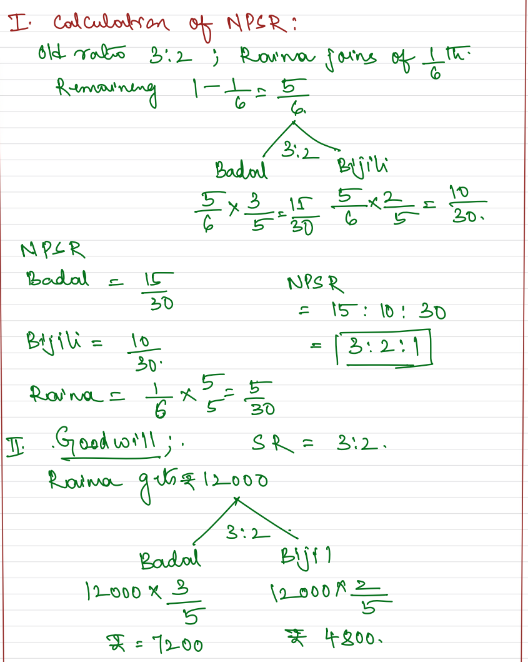 I. Calculation of NPSR:
Old ratio 3:2 ; Raina joins of 1/6 th.
Remaineng 1 - 1/6 = 5/6.
3:2
Badal Bijili
5/6 × 3/5 = 15/30 5/6 × 2/5 = 10/30.
NPSR
Badal = 15/30
NPSR
= 15 : 10 : 30
Bijili = 10/30.
= 3:2:1
Raina = 1/6 × 5/5 = 5/30
II. Goodwill ; . SR = 3:2.
Raima gets ₹ 12000
3:2
Badal Bijil
12000 × 3/5 12000 × 2/5
₹ = 7200 ₹ 4800.